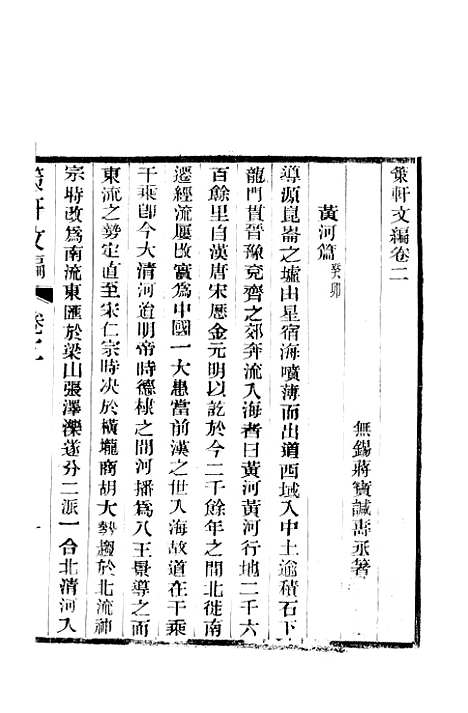 棠軒文編卷二
無錫蔣寶諴壽丞著
黃河篇癸卯
導源崑崙之墟由星宿海噴薄而出道西域入中土逾積石下
龍門貫晉豫兗齊之郊奔流入海者曰黃河黃河行地二千六
百餘里自漢唐宋歷金元明以訖於今二千餘年之間北徙南
遷經流屢改實爲中國一大患當前漢之世入海故道在千乘
千乘卽今大清河道明帝時德棣之間河播爲八王景導之而
東流之勢定直至宋仁宗時決於橫壠商胡大勢趨於北流神
宗時改爲南流東匯於梁山張澤濼遂分二派一合北清河入
棠軒文編
卷二
一